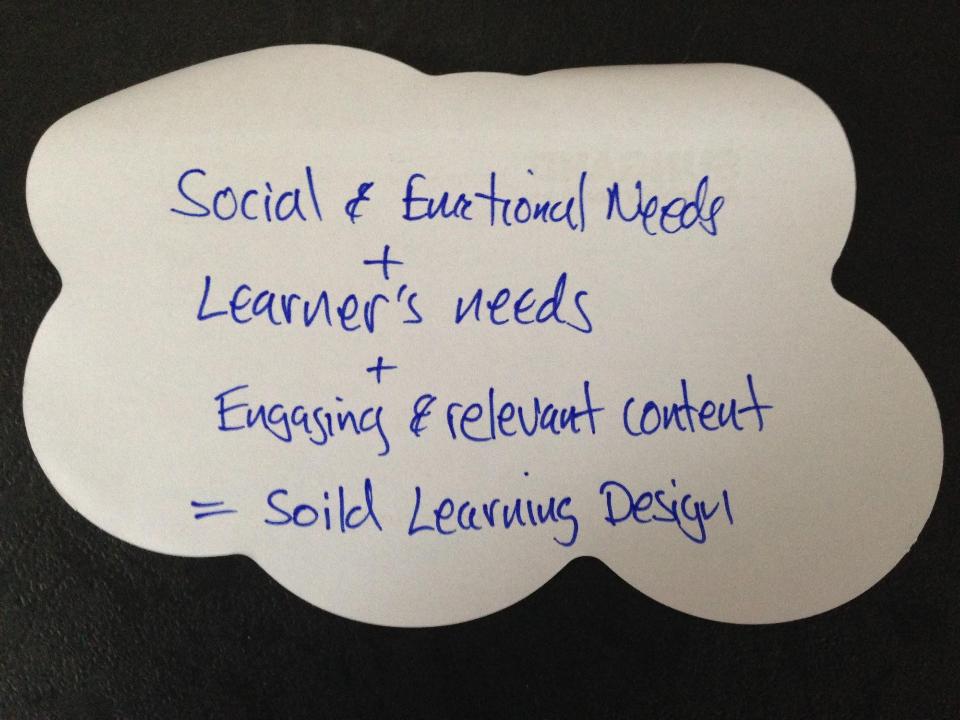 Social & Emotional Needs
+
Learner's needs
+
Engaging & relevant content
= Soild Learning Design